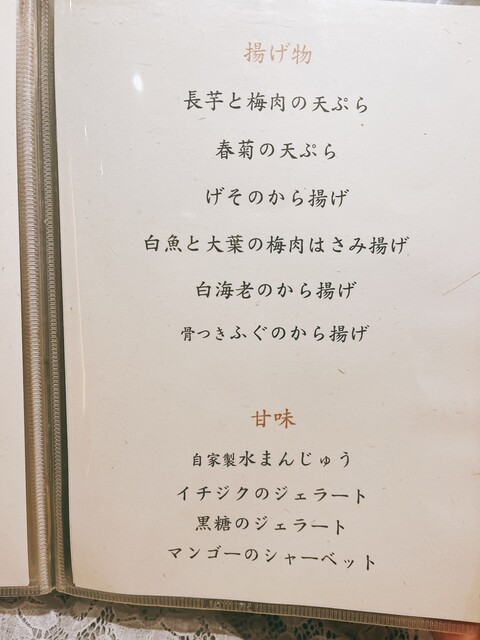 揚げ物
長芋と梅肉の天ぷら
春菊の天ぷら
げそのから揚げ
白魚と大葉の梅肉はさみ揚げ
白海老のから揚げ
骨つきふぐのから揚げ
甘味
自家製水まんじゅう
イチジクのジェラート
黒糖のジェラート
マンゴーのシャーベット